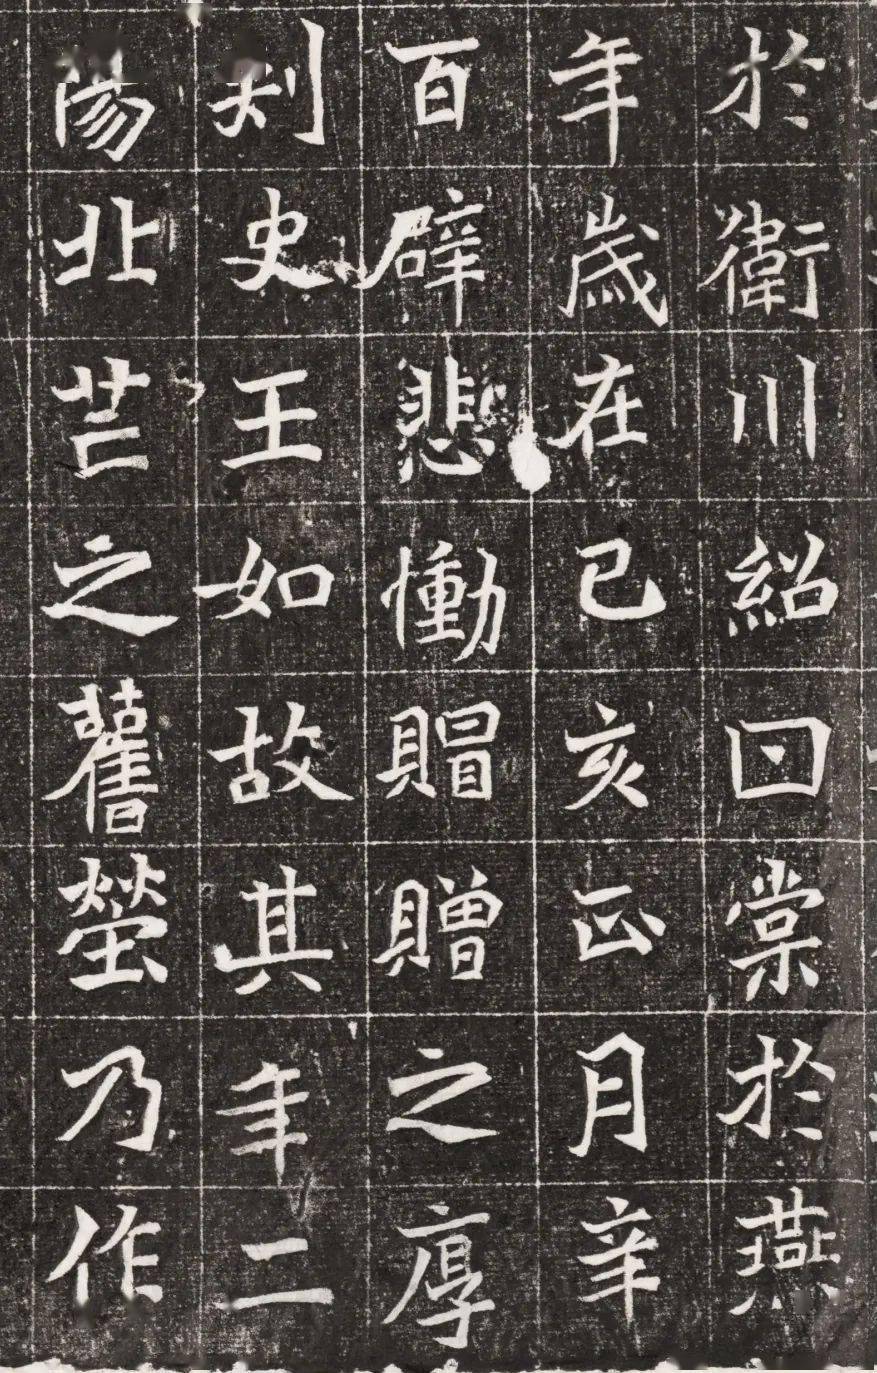 於衛川紹囗棠於燕
年歲在己亥正月辛
百辟悲慟賵贈之厚
刾史王如故其年二
陽北芒之舊塋乃作